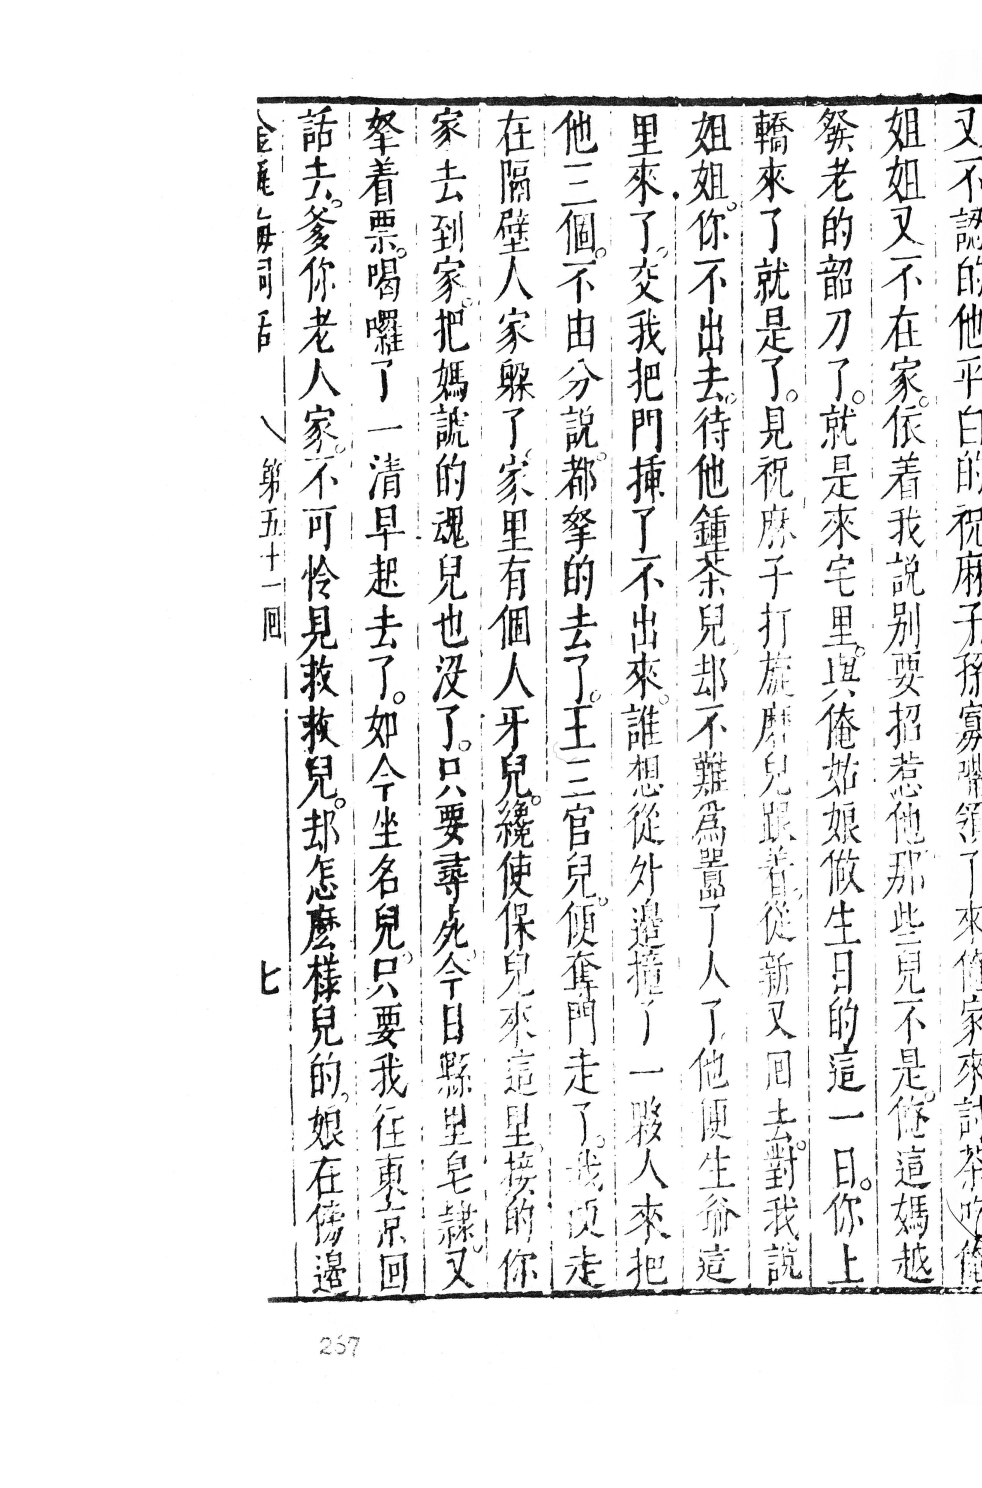 又不認的他平白的祝麻子孫寡嘴領了來俺家來討茶吃俺
姐姐又不在家。依着我說别要招惹他那些兒不是。俺這媽越
發老的韶刀了。就是來宅里。與俺姑娘做生日的這一日。你上
轎來了就是了。見祝麻子打旋磨兒跟着。從新又回去。對我說
姐姐。你不出去。待他鍾茶兒。却不難為嚣了人了他便生爺這
里來了。交我把門揷了。不出來。誰想從外邊撞了一夥人來把
他三個。不由分說。都拏的去了。王三官兒。便奪門走了。我便走
在隔壁人家躲了。家里有個人牙兒。纔使保兒來這里。接的你
家去到家。把媽諕的魂兒也没了。只要尋死。今日縣里皂隸。又
拏着票。喝囉了一清早起去了。如今坐名兒。只要我往東京回
話去。爹你老人家。不可怜見救救兒。却怎麽様兒的。娘在傍邊
金瓶梅詞話 第五十一囘 七
267